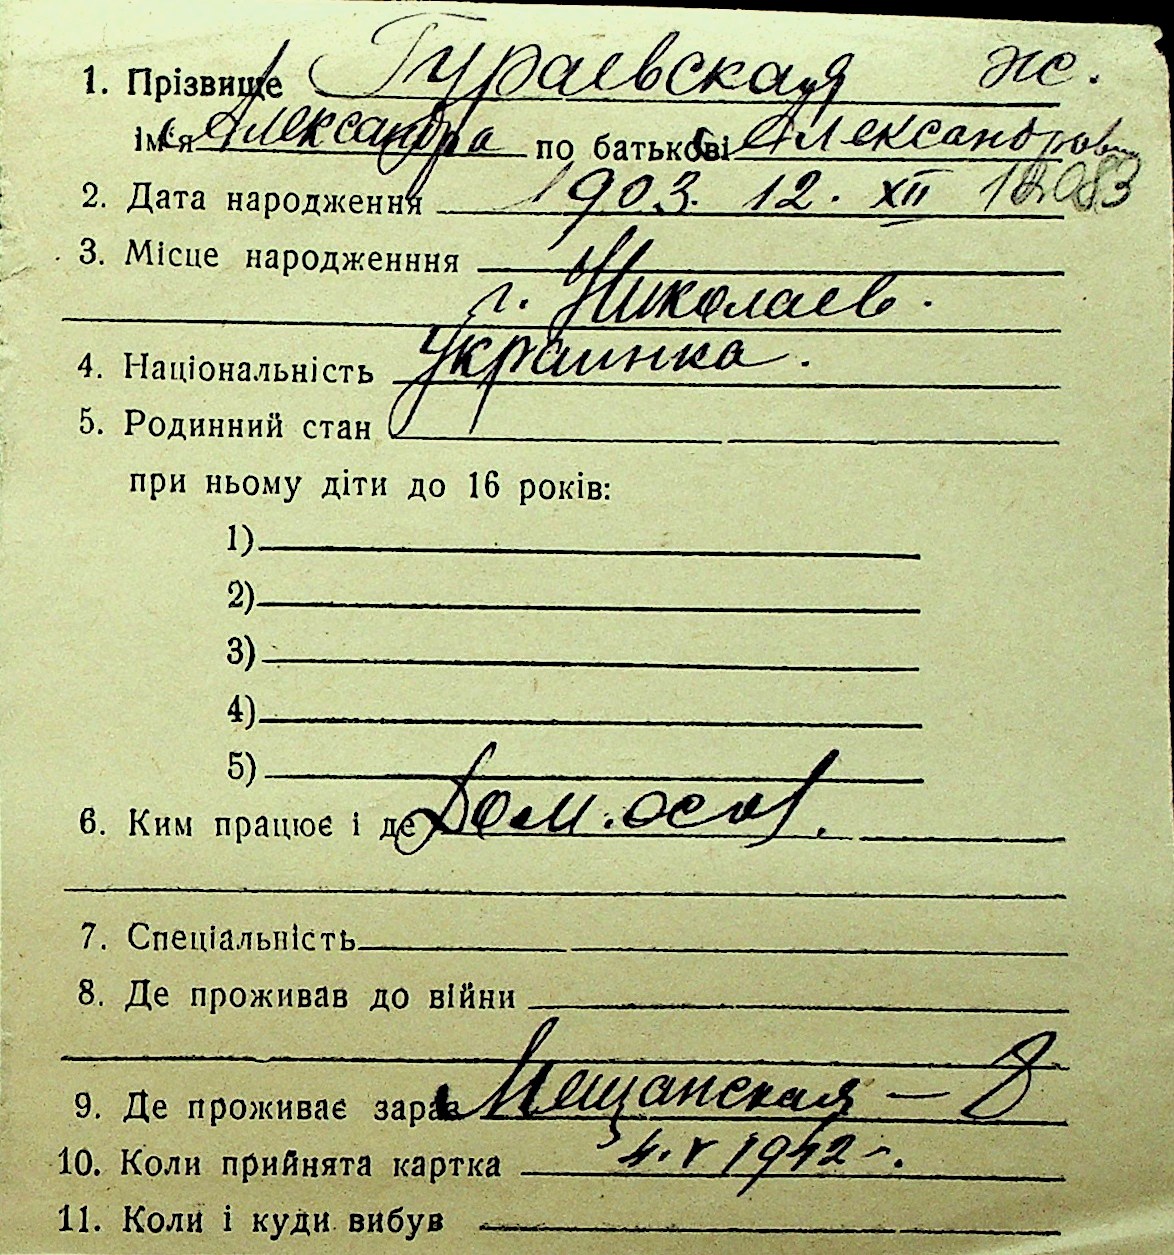 1. Прізвище Гураевская ж.
ім'я Александра по батькові Александровн
2. Дата народження 1903. 12. XII
3. Місце народженння
г. Николаев.
4. Національність Украинка.
5. Родинний стан
при ньому діти до 16 років:
1)
2)
3)
4)
5)
6. Ким працює і де Дом. осоы.
7. Спеціальність
8. Де проживав до війни
9. Де проживає зараз Мещанская – 8
10. Коли прийнята картка 4. V 1942 г.
11. Коли і куди вибув